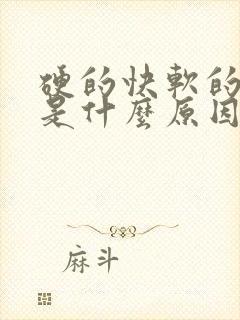 硬的快軟的
是什麼原因
麻斗